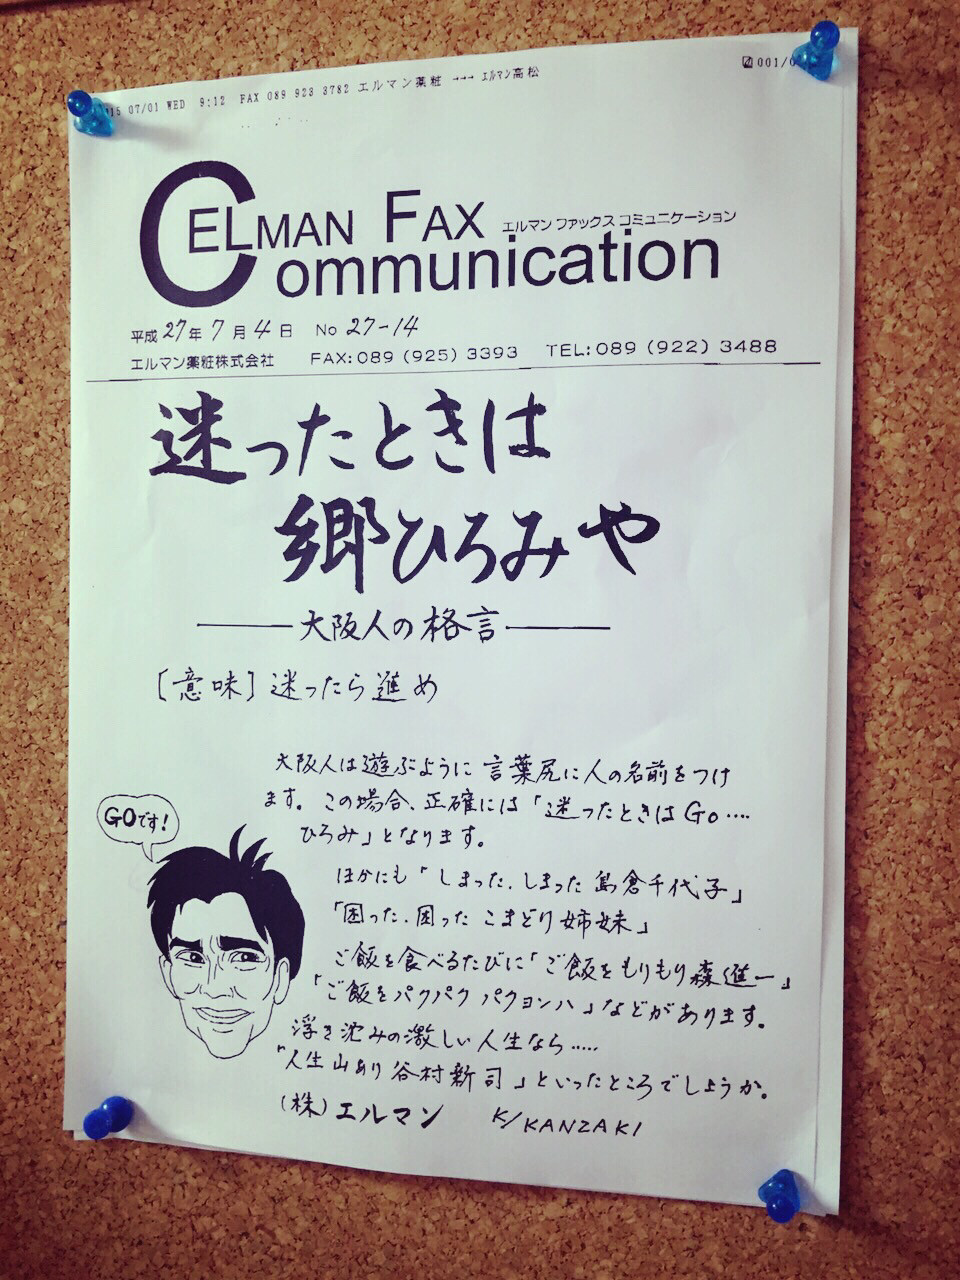 15 07/01 WED 9:12 FAX 089 923 3782 エルマン薬粧 →→→ エルマン高松
001/0
CELMAN FAX エルマン ファックス コミュニケーション
ommunication
平成 27年 7月 4日 No 27-14
エルマン薬粧株式会社 FAX:089(925)3393 TEL:089(922)3488
迷ったときは
郷ひろみや
大阪人の格言
〔意味〕迷ったら進め
大阪人は遊ぶように言葉尻に人の名前をつけ
ます。この場合、正確には「迷ったときはGo‥‥
ひろみ」となります。
GOです!
ほかにも「しまった、しまった 島倉千代子」
「困った、困った こまどり姉妹」
ご飯を食べるたびに「ご飯をもりもり森進一」
「ご飯をパクパク パクヨンハ」などがあります。
浮き沈みの激しい人生なら‥‥‥
"人生山あり谷村新司」といったところでしょうか。
(株)エルマン K/KANZAKI